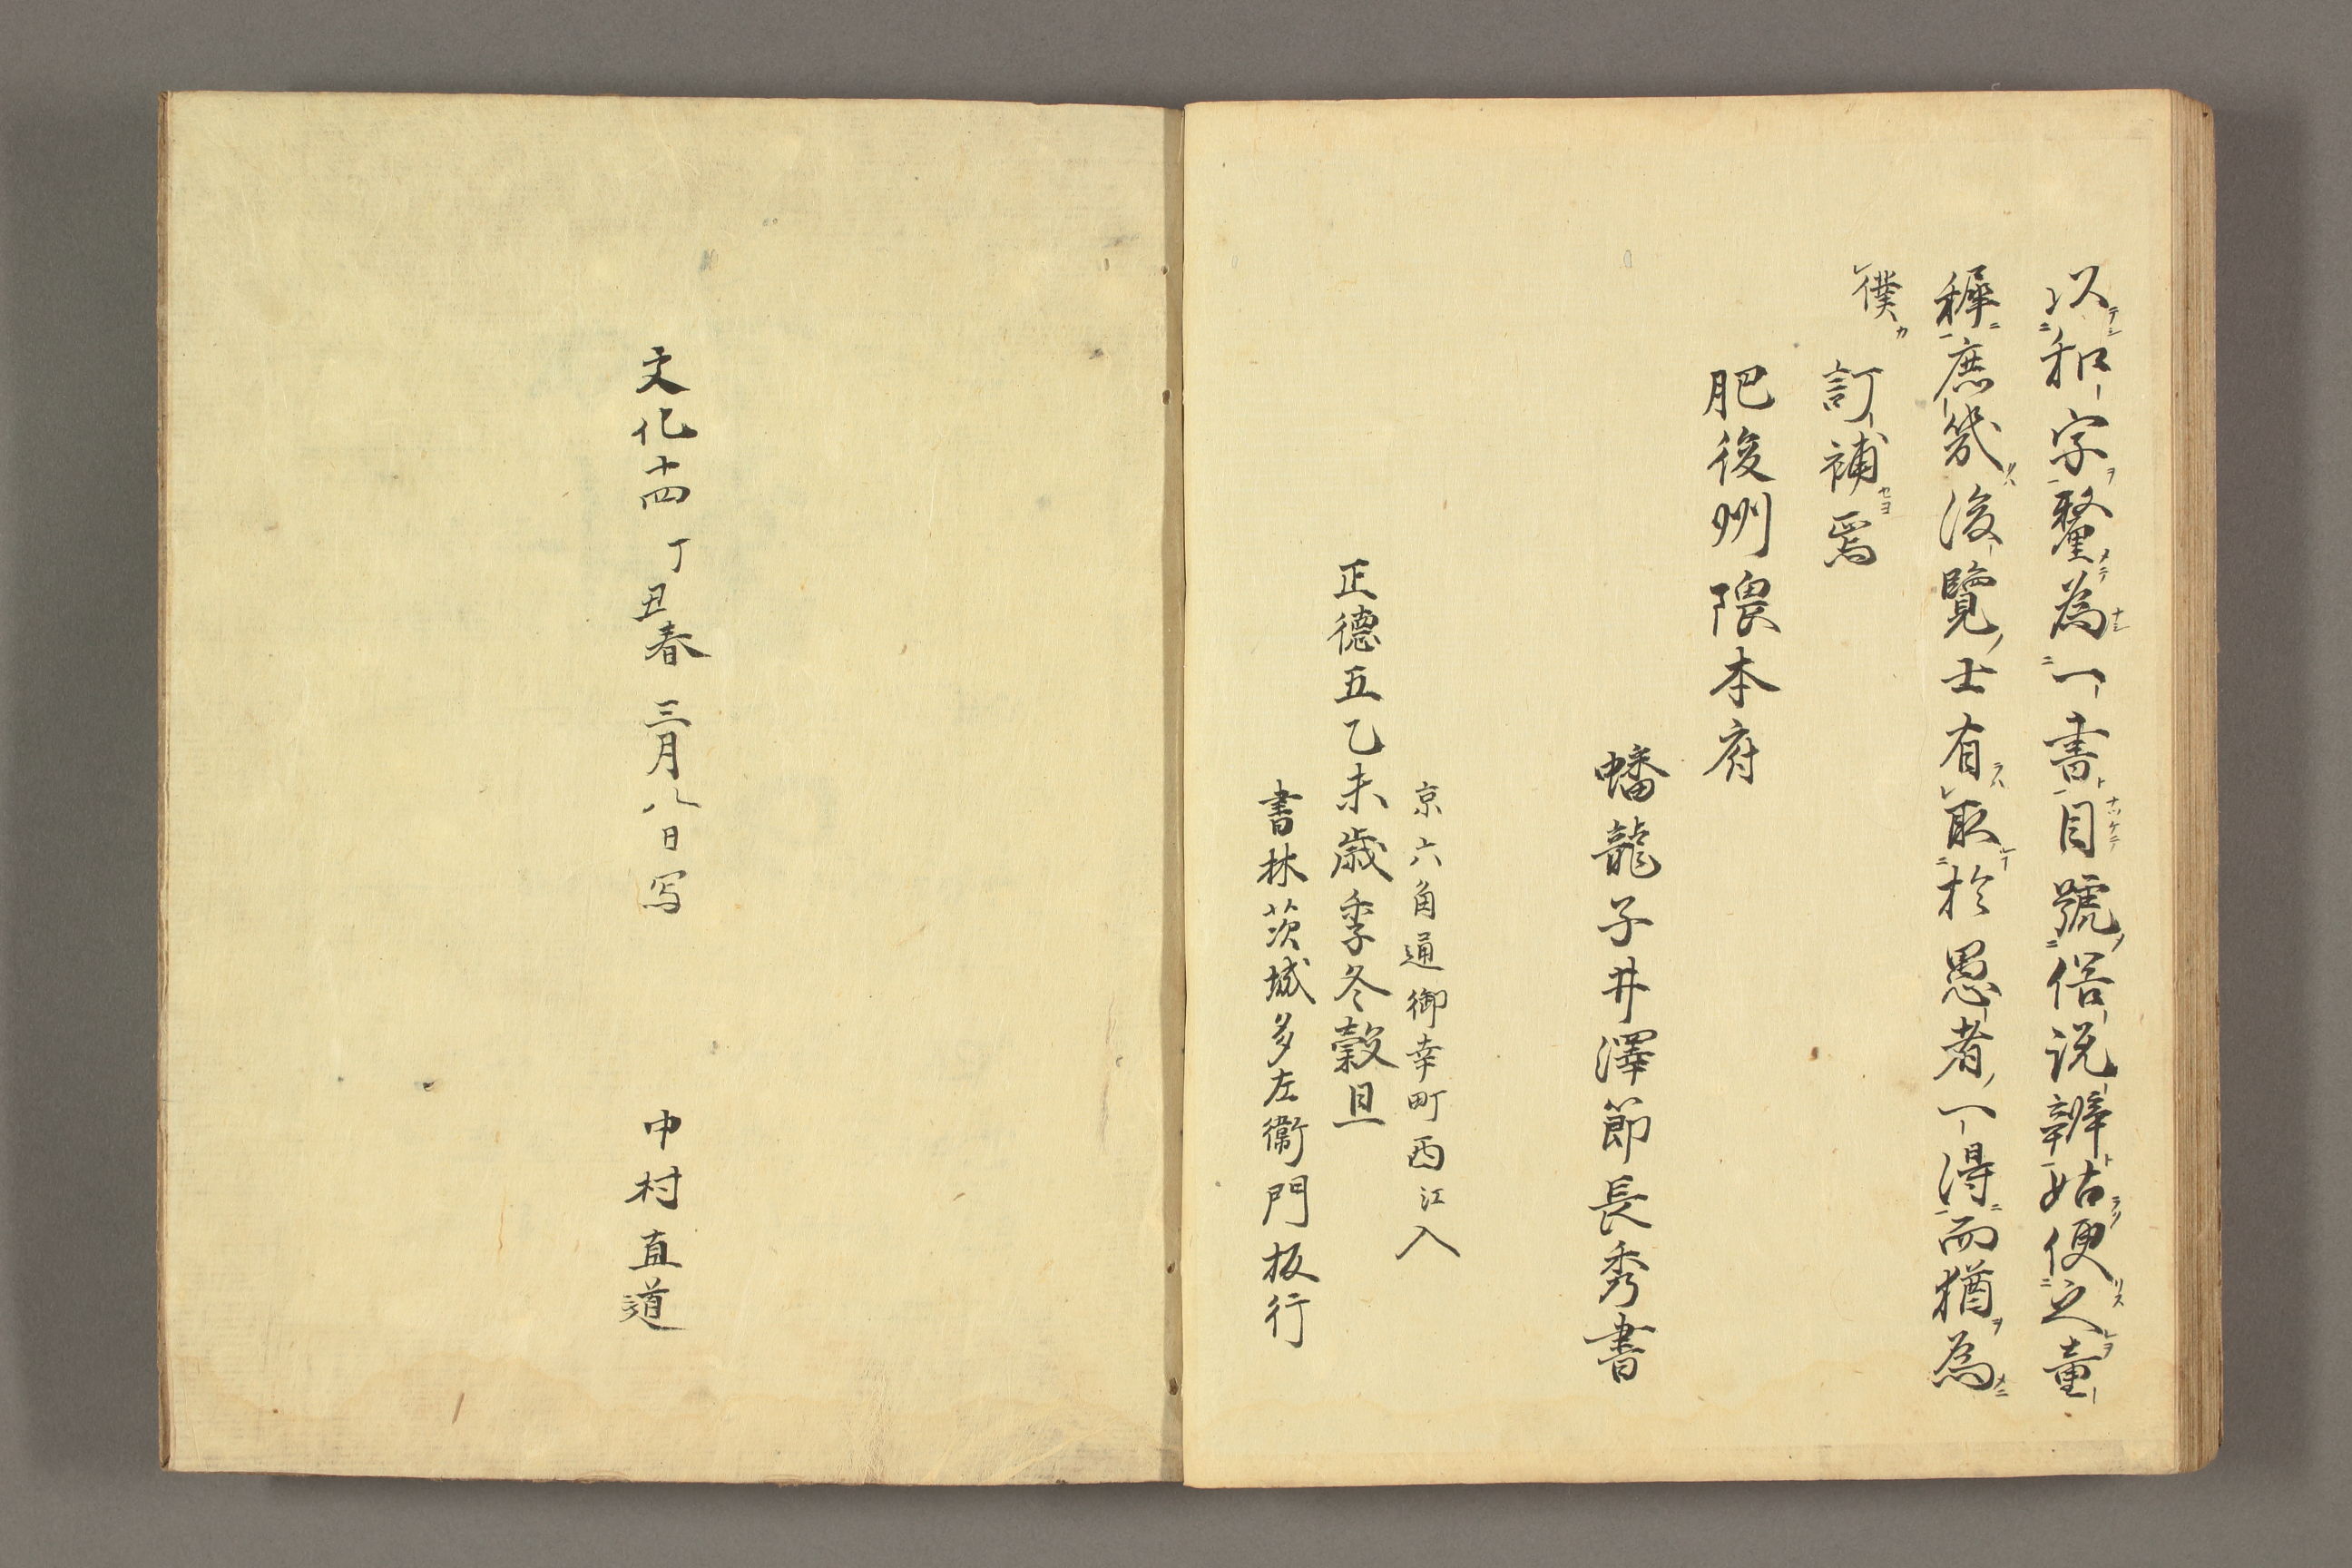 以和字釐為一書目號俗説辨姑便之童
穉庶幾後覽士有取於愚者一得而猶為
僕
訂補焉
肥後州隈本府
蟠龍子井澤節長秀書
京六角通御幸町西江入
正德五乙未歳季冬穀旦
書林茨城多左衞門板行
文化十四 丁丑春 三月八日写 中村直道